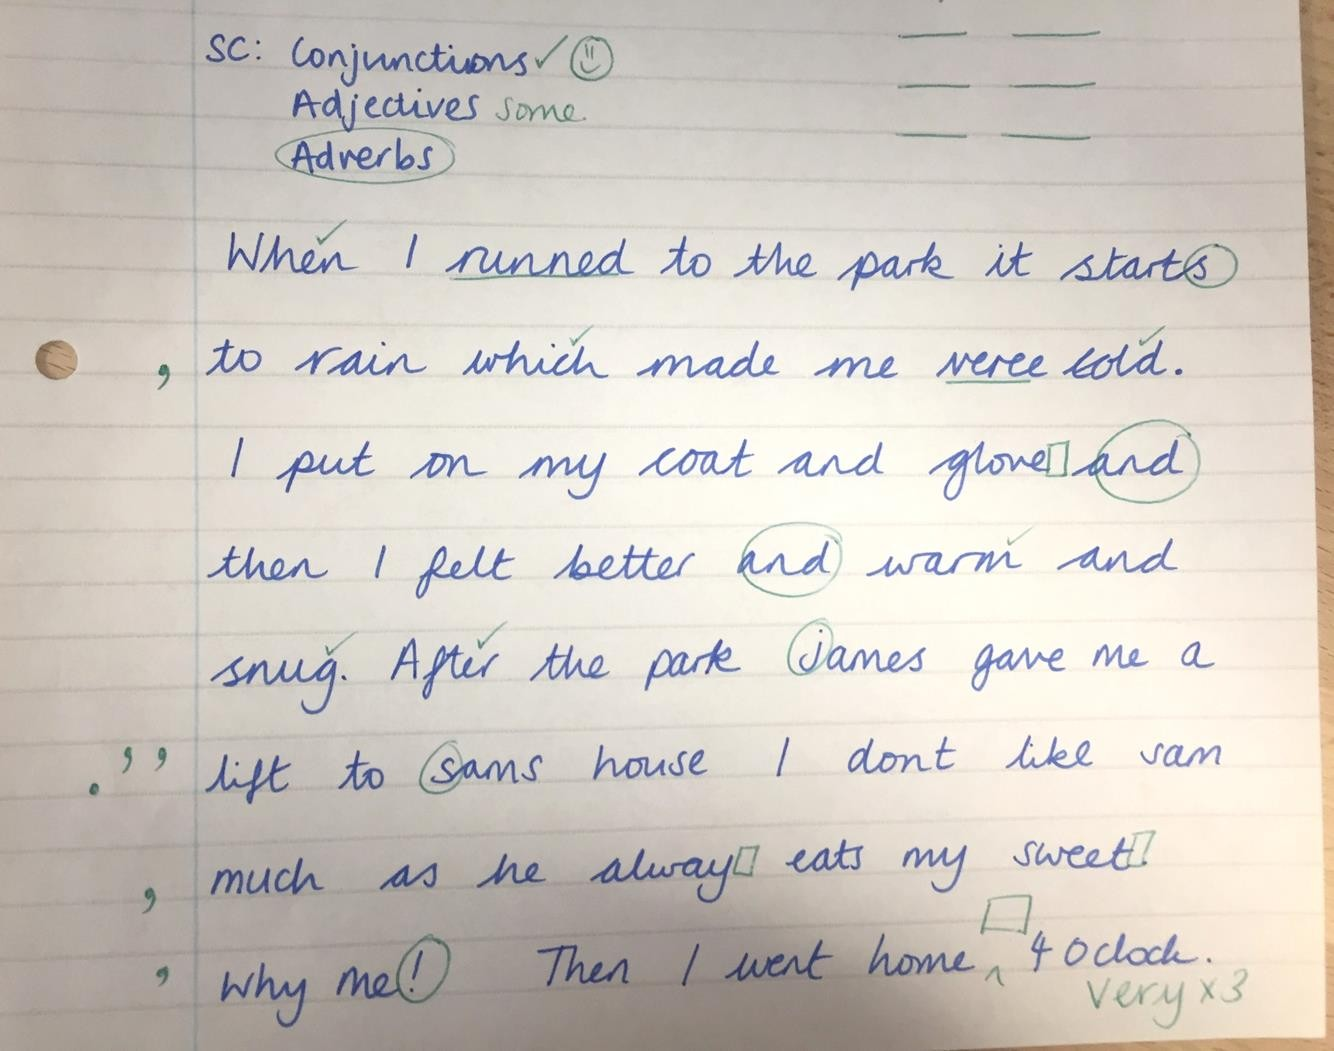 SC: Conjunctions ✓
Adjectives some.
Adverbs
When I runned to the park it starts
, to rain which made me veree cold.
I put on my coat and glove and
then I felt better and warm and
snug. After the park james gave me a
. ' ' lift to sams house I dont like sam
, much as he alway eats my sweet
, Why me! Then I went home ^ 4 Oclock.
very x3